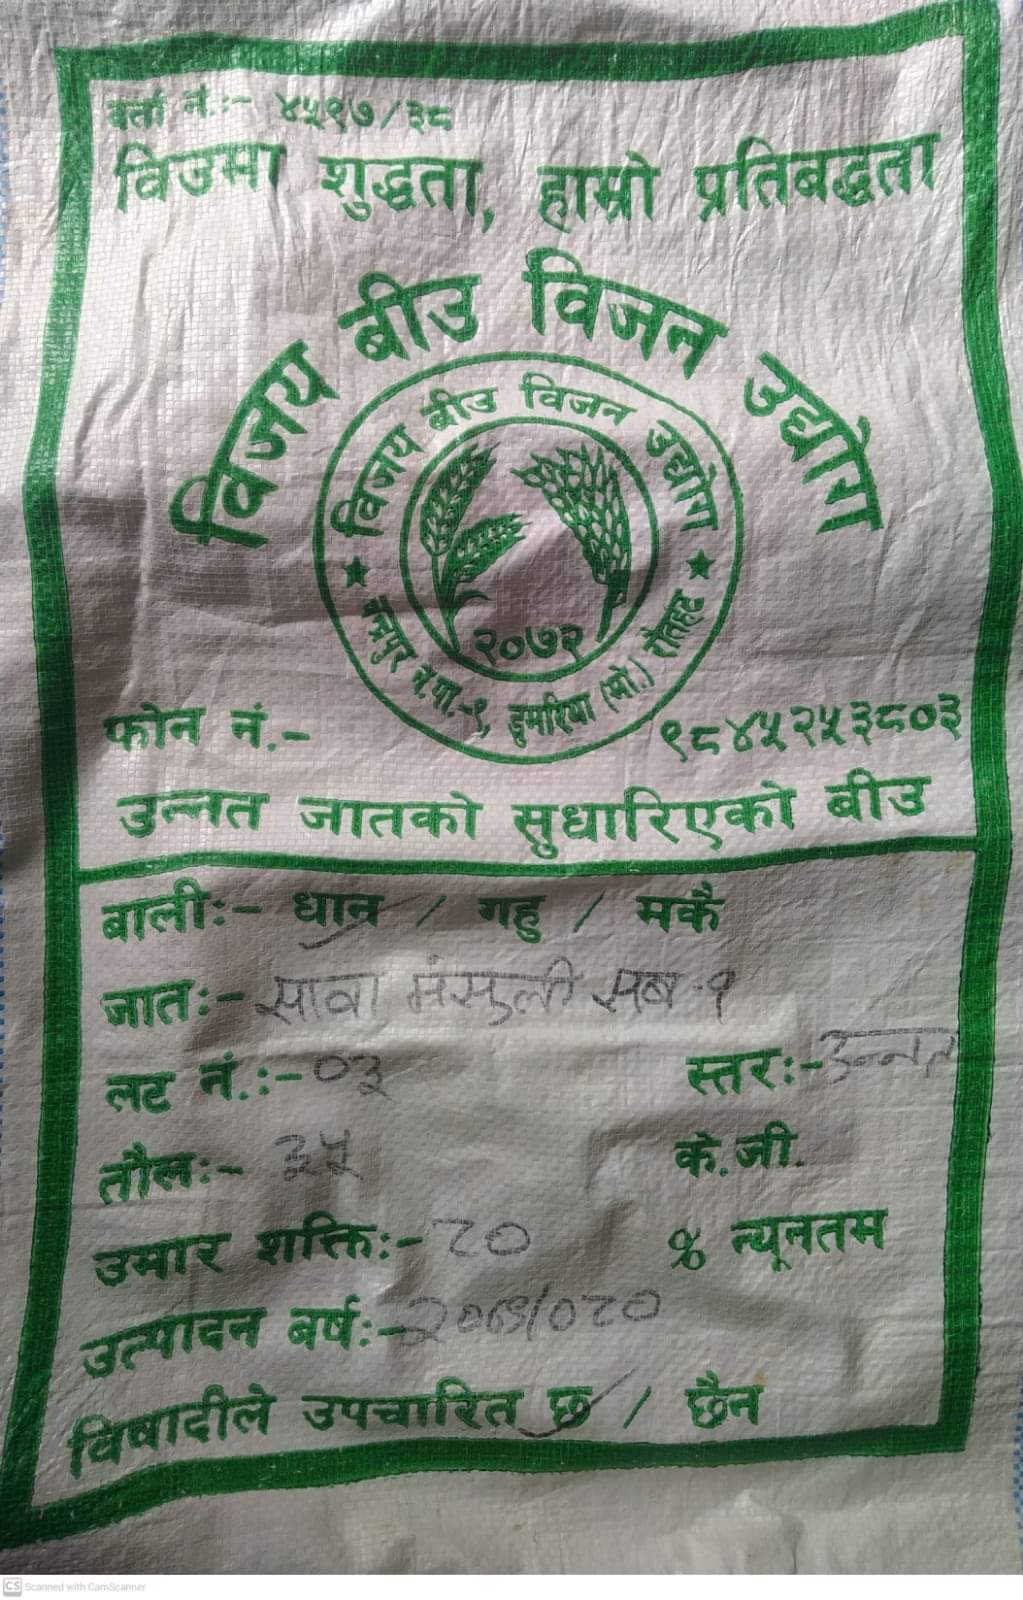 दर्ता नं.:- ४५९७/३८
विउमा शुद्धता, हाम्रो प्रतिबद्धता
विजय बीउ विजन उद्योग
विजय बीउ विजन उद्योग
२०७२
चन्द्रपुर न.पा.-९, डुमरिया (मो.) रौतहट
फोन नं.- ९८४५२५३८०३
उन्नत जातको सुधारिएको बीउ
बालीः- धान / गहु / मकै
जातः- सावा मंसुली सब-१
लट नं.:- ०३ स्तरः- उन्नत
तौलः- ३५ के.जी.
उमार शक्तिः- ८० % न्यूनतम
उत्पादन बर्षः- २०७९/०८०
विषादीले उपचारित छ / छैन
CS Scanned with CamScanner